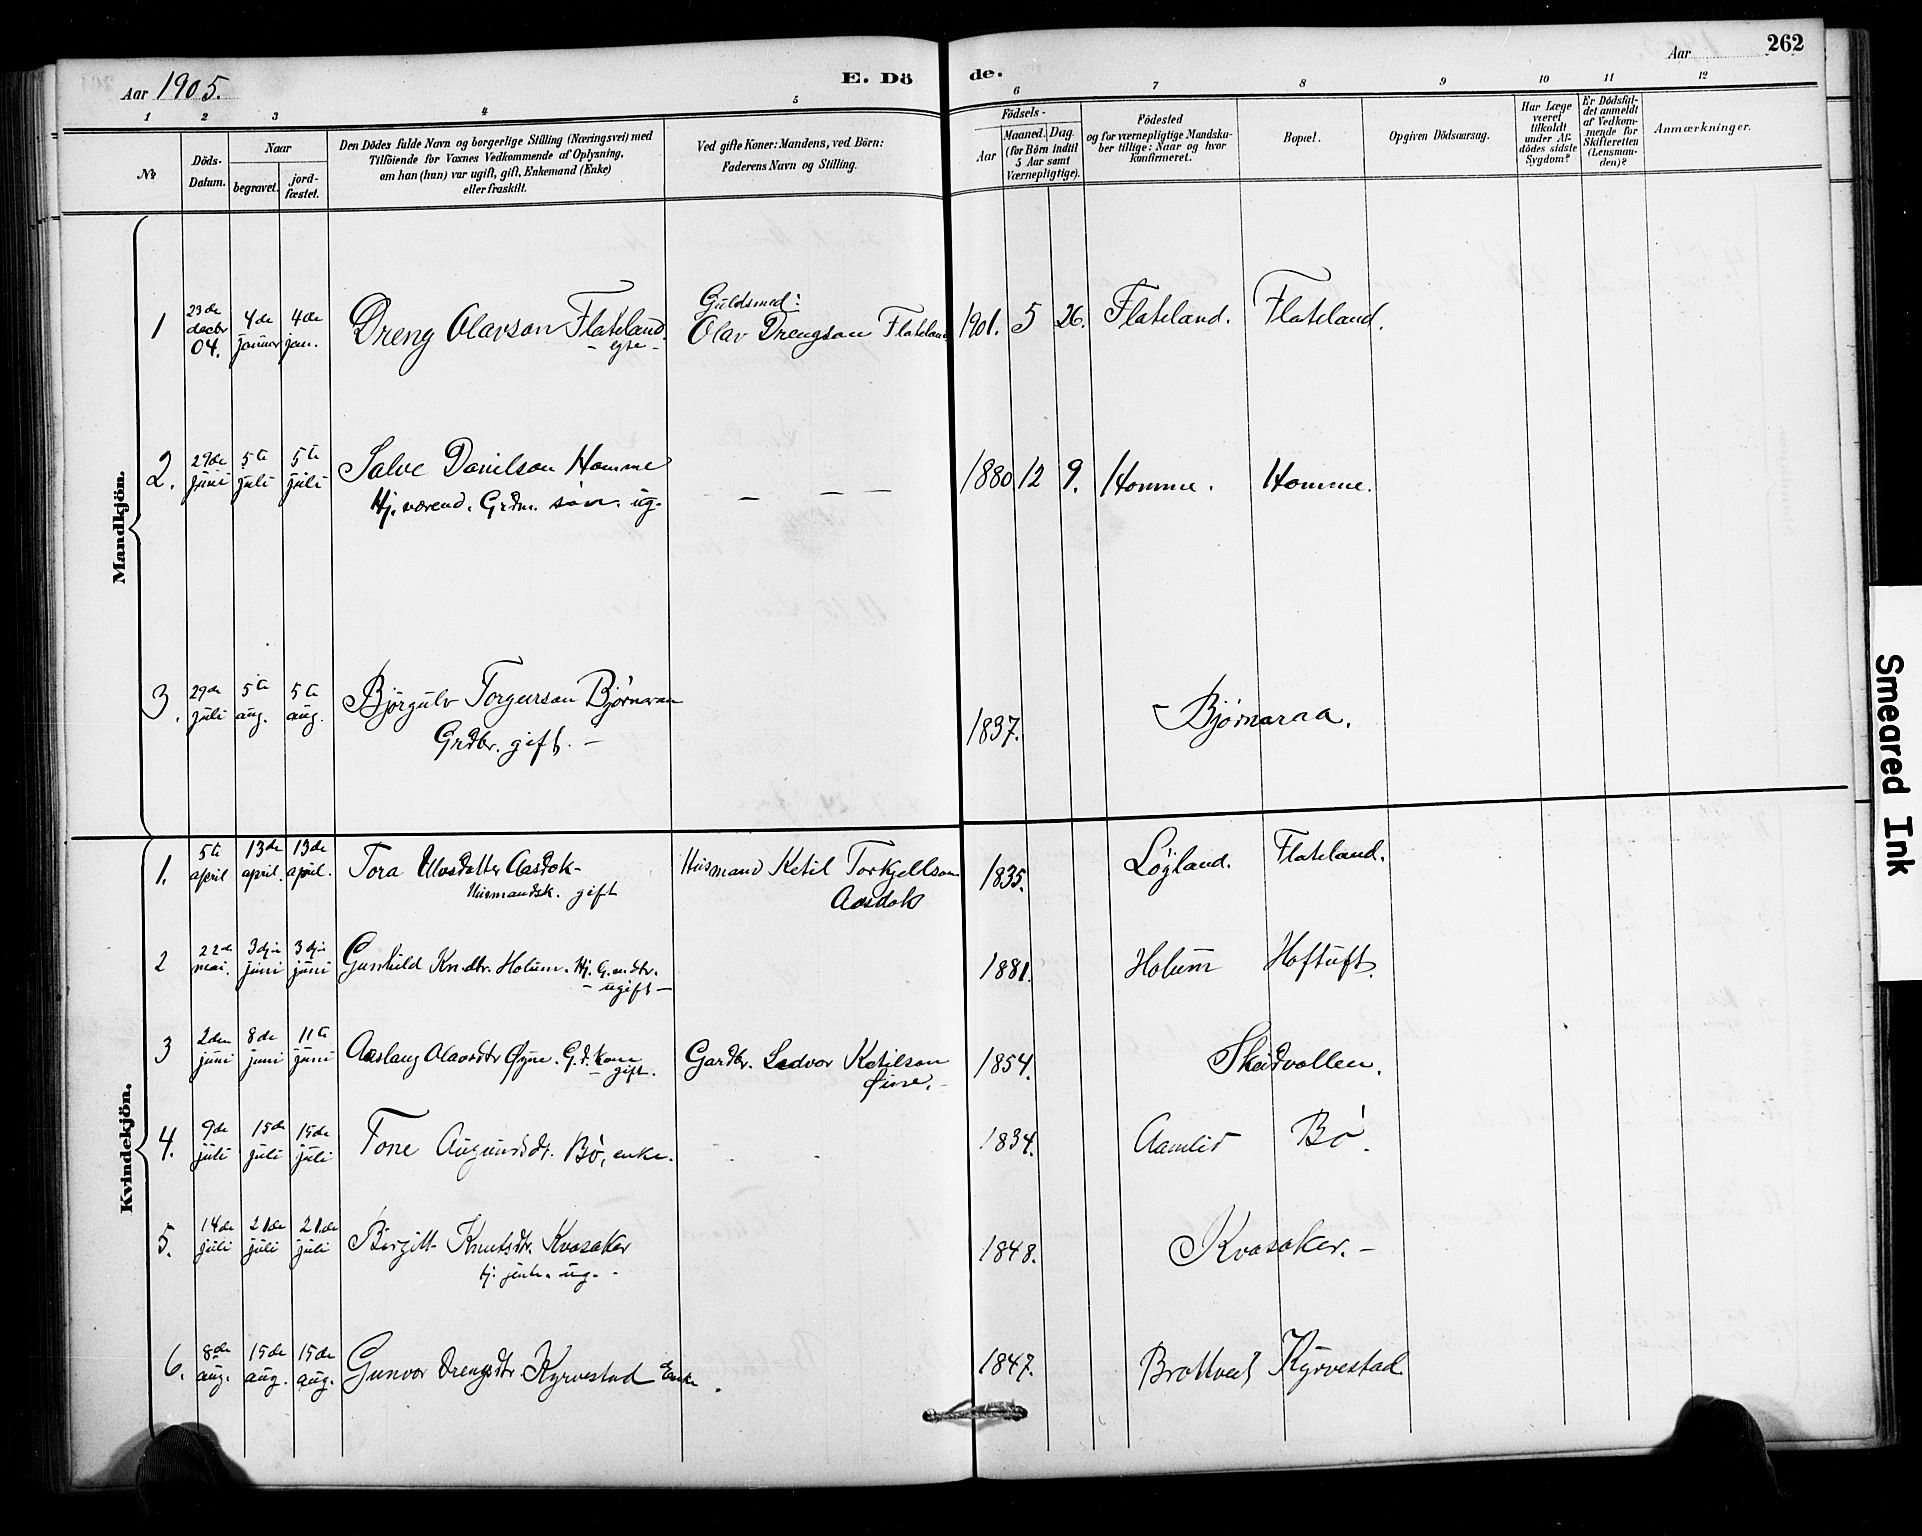 262
Aar 1905.
E. Döde.
Aar
1 2 3 4 5 6 7 8 9 10 11 12
No
Döds-Datum.
Naar
begravet.
jord-fæstet.
Den Dödes fulde Navn og borgerlige Stilling (Næringsvei) med
Tilföiende for Voxnes Vedkommende af Oplysning,
om han (hun) var ugift, gift, Enkemand (Enke)
eller fraskilt.
Ved gifte Koner: Mandens, ved Börn:
Faderens Navn og Stilling.
Födsels-
Aar
Maaned. Dag.
(for Börn indtil
5 Aar samt
Værnepligtige).
Födested
og for værnepligtige Mandska-
ber tillige: Naar og hvor
konfirmeret.
Bopæl.
Opgiven Dödsaarsag.
Har Læge
været
tilkaldt
under Af-
dödes sidste
Sygdom?
Er Dödsfal-
det anmeldt
af Vedkom-
mende for
Skifteretten
(Lensman-
den)?
Anmærkninger.
Mandkjön.
1 23de decbr 04. 4de januar 4de jan. Dreng Olavson Flateland. - egte - Guldsmed: Olav Drengson Flateland 1901. 5 26. Flateland. Flateland.
2. 29de juni 5te juli 5te juli Salve Danielson Homme Hj. værend. Grdm. søn. ug. - — — — 1880 12 9. Homme. Homme.
3. 29de juli 5te aug. 5te aug. Bjørgulv Torgeirson Bjørnaraa Grdbr. gift. — 1837. - Bjørnaraa.
Kvindekjön.
1. 5te april 13de april. 13de april. Tora Olvsdatter Aasdok- Husmandsk. gift Husmand Ketil Torkjellson Aasdok 1835. Løgland. Flateland.
2 22de mai. 3dje juni 3dje juni Gunhild Kn.dtr. Holum. Hj. G.m.dtr. - ugift - 1881. Holum Hoftuft.
3 2den juni 8de juni 11te juni Aaslaug Olavsdtr Øyne. G.d. kone - gift. Gardbr. Ledvor Ketilson Øine. - 1854. Skeidvollen.
4. 9de juli 15de juli 15de juli Tone Augundsdt. Bø, enke. 1834. Aamlid Bø.
5. 14de juli 21de juli 21de juli Birgitt Knutsdtr. Kvasaker hj. jente. ug. - 1848. Kvasaker. -
6. 8de aug. 15de aug. 15de aug. Gunvor Drengsdtr. Kyrvestad Enke. 1847. Brottveit Kyrvestad
Smeared Ink